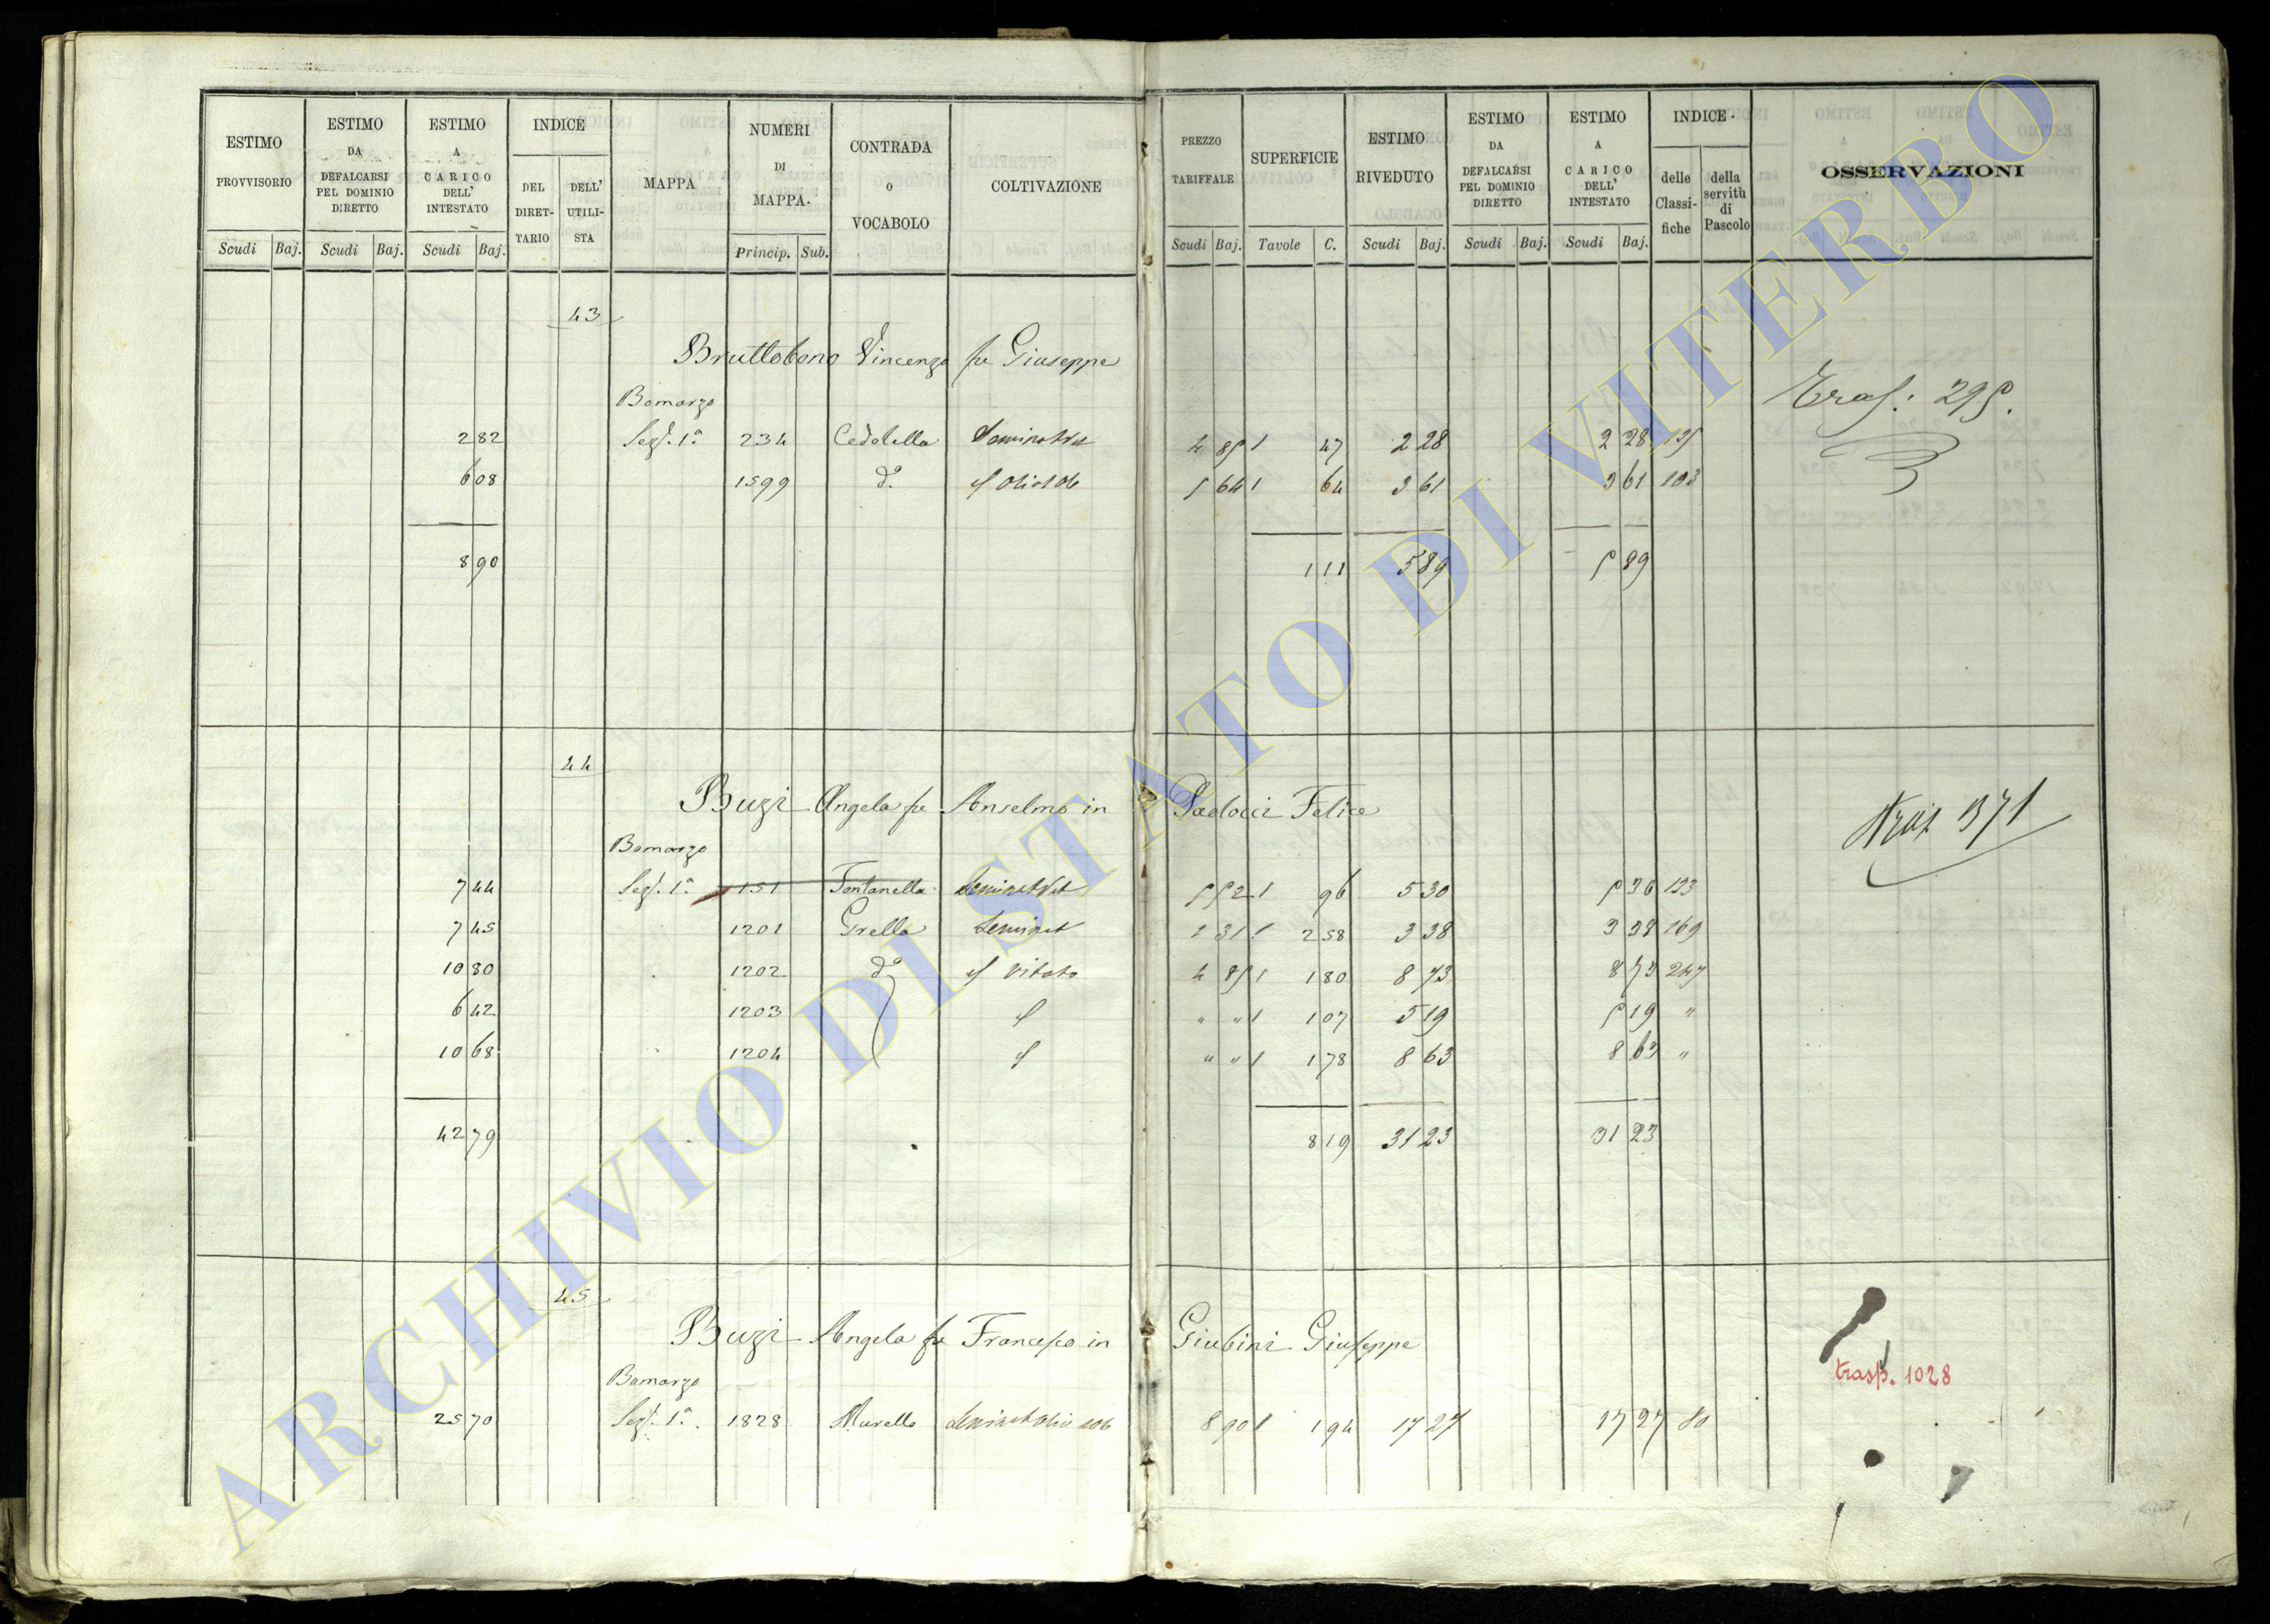 ESTIMO PROVVISORIO Scudi Baj.
ESTIMO DA DEFALCARSI PEL DOMINIO DIRETTO Scudi Baj.
ESTIMO A CARICO DELL' INTESTATO Scudi Baj.
INDICE DEL DIRET-TARIO DELL' UTILI-STA
MAPPA
NUMERI DI MAPPA. Princip. Sub.
CONTRADA O VOCABOLO
COLTIVAZIONE
PREZZO TARIFFALE Scudi Baj.
SUPERFICIE Tavole C.
ESTIMO RIVEDUTO Scudi Baj.
ESTIMO DA DEFALCARSI PEL DOMINIO DIRETTO Scudi Baj.
ESTIMO A CARICO DELL' INTESTATO Scudi Baj.
INDICE. delle Classi-fiche della servitù di Pascolo
OSSERVAZIONI
43
Bruttobono Vincenzo fu Giuseppe
Bomarzo
Trasp: 295.
2 82 Sezt. 1ª 234 Cedolella Seminat Vit 4 85 1 47 2 28 2 28 135
6 08 1599 dº 5 64 1 64 3 61 3 61 103
8 90 1 11 5 89 5 89
44
Buzi Angela fu Anselmo in Paolocci Felice
Tras 1371
Bomarzo
7 44 Sezt. 1ª 151 Fontanella Seminat Vit 5 52 1 96 5 30 5 30 133
7 45 1201 Grella Seminat 1 31 1 2 58 3 38 3 38 169
10 80 1202 dº vitato 4 85 1 1 80 8 73 8 73 247
6 42 1203 " " 1 1 07 5 19 5 19 "
10 68 1204 " " 1 1 78 8 63 8 63 "
42 79 8 19 31 23 31 23
45
Buzi Angela fu Francesco in Giubini Giuseppe
trasp. 1028
Bomarzo
25 70 Sezt. 1ª 1828 Murella 8 90 1 1 94 17 27 17 27 80
ARCHIVIO DI STATO DI VITERBO